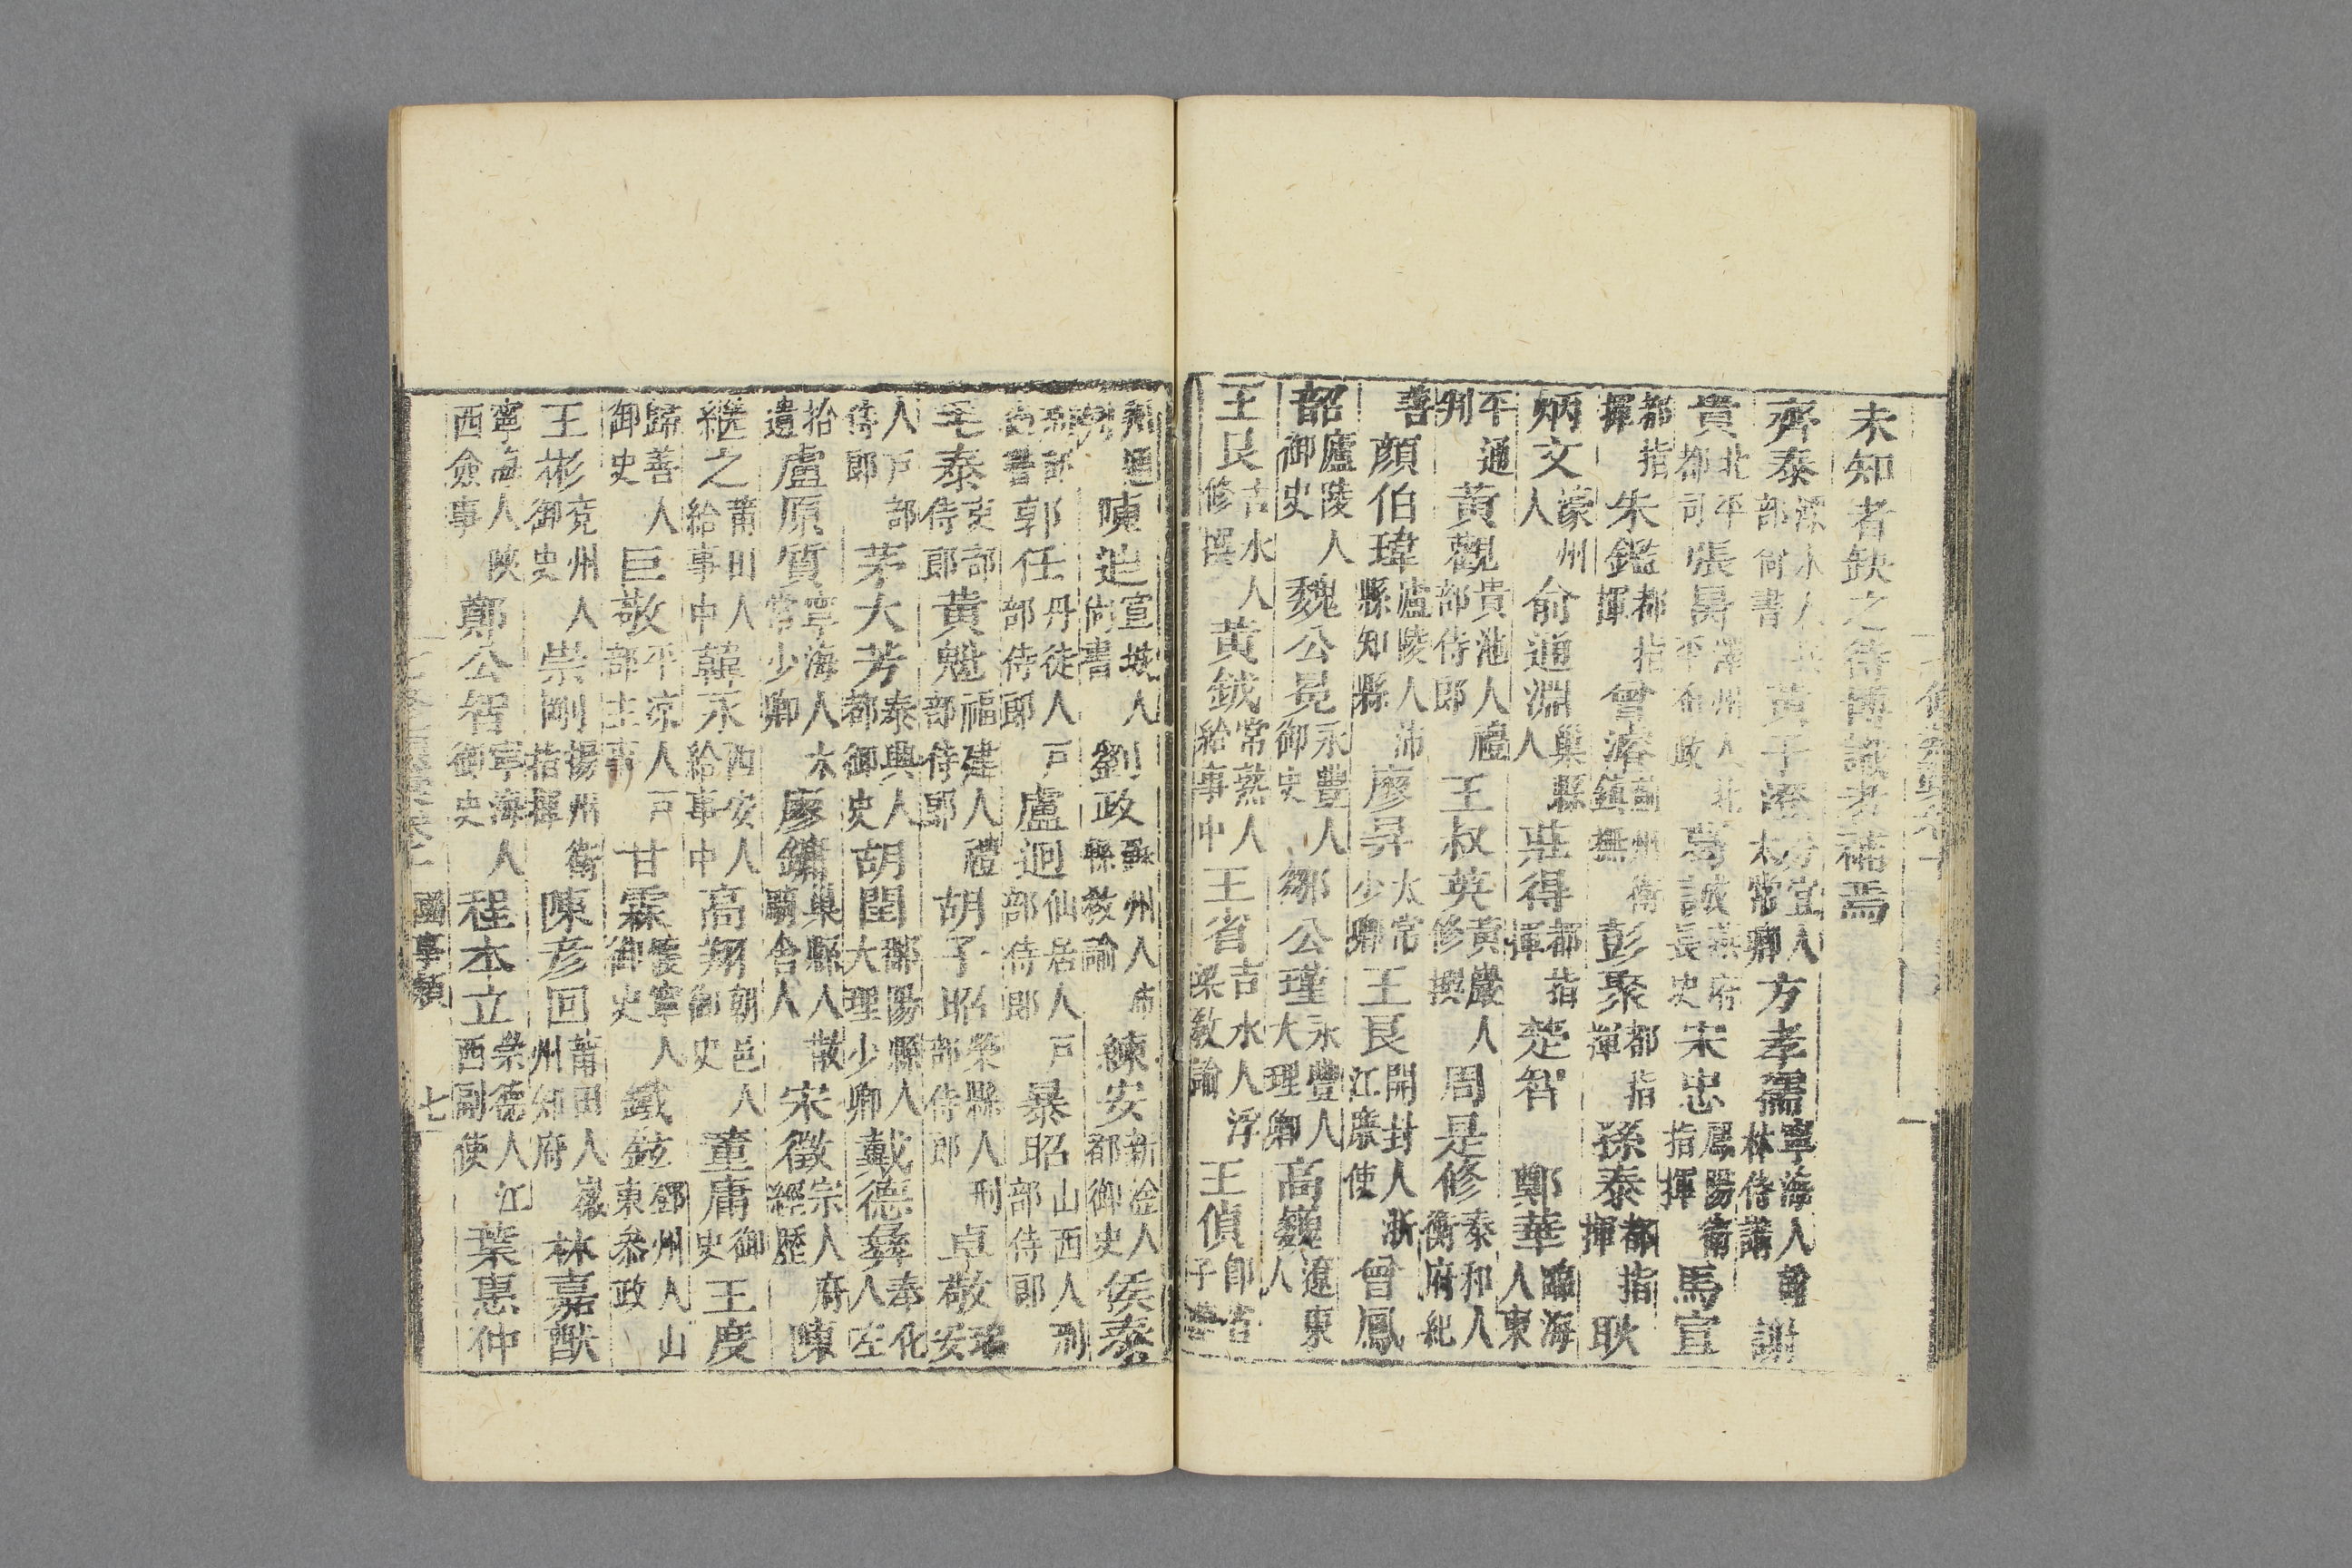 未知者缺之待博識者補焉
齊泰溧水人兵部尚書黃子澄分宜人太常卿方孝孺寧海人翰林侍講謝
貴北平都司張昺澤州人北平布政葛誠燕府長史宋忠鳳陽衛指揮馬宣
都指揮朱鑑都指揮曾濬薊州衛鎮撫彭聚都指揮孫泰都指揮耿
炳文濠州人俞通淵巢縣人莊得都指揮楚智鄭華臨海人東
平通判黃觀貴池人禮部侍郎王叔英黃巖人修撰周是修泰和人衡府紀
善顏伯瑋廬陵人沛縣知縣廖昇太常少卿王艮開封人浙江廉使曾鳳
韶廬陵人御史魏公冕永豐人御史鄒公瑾永豐人大理卿高巍遼東人
王艮吉水人修撰黃鉞常熟人給事中王省吉水人浮梁教諭王偵
州通判陳迪宣城人尚書劉政蘇州人縣教諭練安新淦人都御史侯泰
郭任丹徒人戶部侍郎盧迥仙居人戶部侍郎暴昭山西人刑
毛泰吏部侍郎黃魁福建人禮部侍郎胡子昭榮縣人刑部侍郎卓敬瑞安
人戶部侍郎茅大芳泰興人都御史胡閏鄱陽縣人大理少卿戴德彝奉化人左
拾遺盧原質寧海人太常少卿廖鏞巢縣人散騎舍人宋徵宗人府經歷陳
繼之莆田人給事中韓永西安人給事中高翔朝邑人御史董庸御史王度
歸善人御史巨敬平涼人戶部主事甘霖御史鐵鉉鄧州人山東叅政
王彬兗州人御史崇剛揚州衛指揮陳彥回莆田人徽州知府林嘉猷
寧海人陝西僉事鄭公智寧海人御史程本立崇德人江西副使葉惠仲
國事類 七